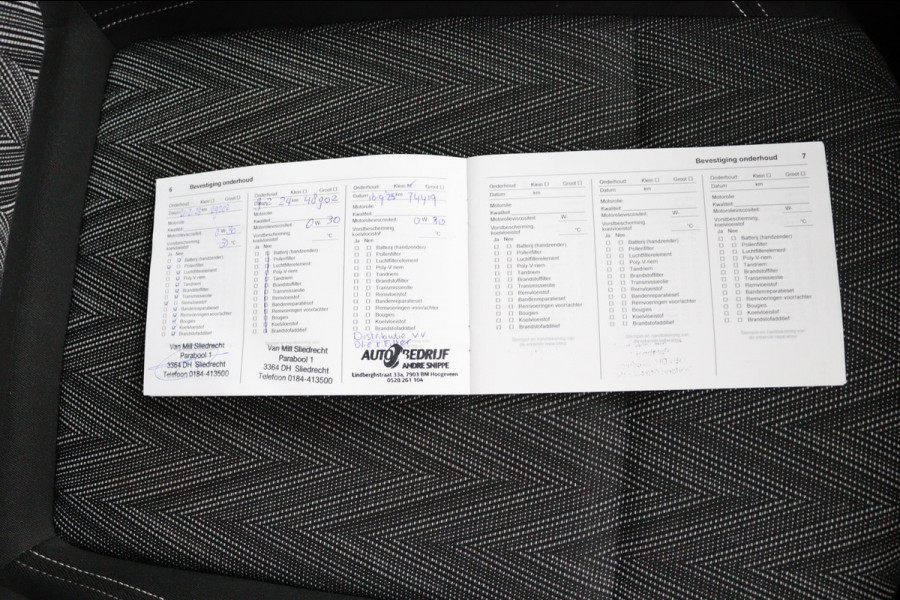 6 Bevestiging onderhoud
Onderhoud Klein Groot
Datum
Motorolie
Kwaliteit
Motorolieviscositeit
Vorstbescherming
koelvloeistof
Ja Nee
Batterij (handzender)
Pollenfilter
Luchtfilterelement
Poly-V-riem
Tandriem
Brandstoffilter
Transmissieolie
Remvloeistof
Bandenreparatieset
Remvoeringen voor/achter
Bougies
Koelvloeistof
Brandstofadditief
Van Mill Sliedrecht
Parabool 1
3364 DH Sliedrecht
Telefoon 0184-413500
Onderhoud Klein Groot
24 km 48902
Motorolie
Kwaliteit
Motorolieviscositeit 0 W 30
Vorstbescherming
koelvloeistof °C
Ja Nee
Batterij (handzender)
Pollenfilter
Luchtfilterelement
Poly-V-riem
Tandriem
Brandstoffilter
Transmissieolie
Remvloeistof
Bandenreparatieset
Remvoeringen voor/achter
Bougies
Koelvloeistof
Brandstofadditief
Van Mill Sliedrecht
Parabool 1
3364 DH Sliedrecht
Telefoon 0184-413500
Onderhoud Klein Groot
Datum 16-9-'25 km 74419
Motorolie
Kwaliteit
Motorolieviscositeit 0 W 30
Vorstbescherming
koelvloeistof °C
Ja Nee
Batterij (handzender)
Pollenfilter
Luchtfilterelement
Poly-V-riem
Tandriem
Brandstoffilter
Transmissieolie
Remvloeistof
Bandenreparatieset
Remvoeringen voor/achter
Bougies
Koelvloeistof
Brandstofadditief
Distributie V.V
Olie + Filter
AUTO BEDRIJF
ANDRE SNIPPE
Lindberghstraat 33a, 7903 BM Hoogeveen
0528 261 104
Bevestiging onderhoud 7
Onderhoud Klein Groot
Datum km
Motorolie
Kwaliteit
Motorolieviscositeit W-
Vorstbescherming
koelvloeistof °C
Ja Nee
Batterij (handzender)
Pollenfilter
Luchtfilterelement
Poly-V-riem
Tandriem
Brandstoffilter
Transmissieolie
Remvloeistof
Bandenreparatieset
Remvoeringen voor/achter
Bougies
Koelvloeistof
Brandstofadditief
Onderhoud Klein Groot
Datum km
Motorolie
Kwaliteit
Motorolieviscositeit W-
Vorstbescherming
koelvloeistof °C
Ja Nee
Batterij (handzender)
Pollenfilter
Luchtfilterelement
Poly-V-riem
Tandriem
Brandstoffilter
Transmissieolie
Remvloeistof
Bandenreparatieset
Remvoeringen voor/achter
Bougies
Koelvloeistof
Brandstofadditief
Onderhoud Klein Groot
Datum km
Motorolie
Kwaliteit
Motorolieviscositeit W-
Vorstbescherming
koelvloeistof °C
Ja Nee
Batterij (handzender)
Pollenfilter
Luchtfilterelement
Poly-V-riem
Tandriem
Brandstoffilter
Transmissieolie
Remvloeistof
Bandenreparatieset
Remvoeringen voor/achter
Bougies
Koelvloeistof
Brandstofadditief